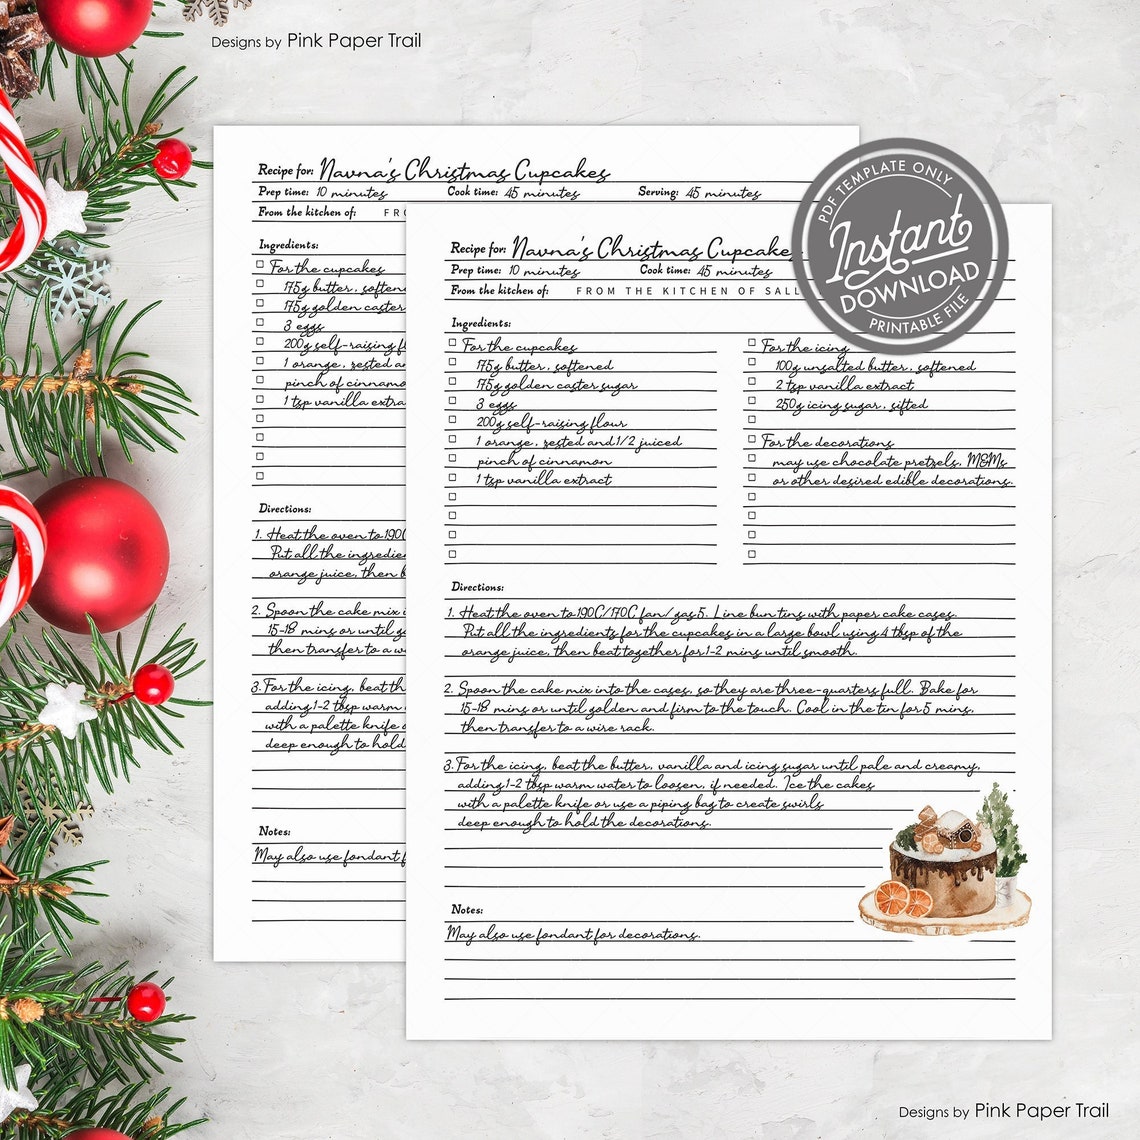 Designs by Pink Paper Trail
Recipe for: Navna's Christmas Cupcakes
Prep time: 10 minutes Cook time: 45 minutes Serving: 45 minutes
From the kitchen of: FRO
Ingredients:
For the cupcakes
175g butter, soften
175g golden caster
3 eggs
200g self-raising f
1 orange, zested an
pinch of cinnamo
1 tsp vanilla extra
Directions:
1. Heat the oven to 190C
Put all the ingredie
orange juice, then b
2. Spoon the cake mix i
15-18 mins or until go
then transfer to a w
3. For the icing, beat th
adding 1-2 tbsp warm
with a palette knife o
deep enough to hold
Notes:
May also use fondant f
PDF TEMPLATE ONLY
Instant
DOWNLOAD
PRINTABLE FILE
Recipe for: Navna's Christmas Cupcakes
Prep time: 10 minutes Cook time: 45 minutes
From the kitchen of: FROM THE KITCHEN OF SALL
Ingredients:
For the cupcakes
175g butter, softened
175g golden caster sugar
3 eggs
200g self-raising flour
1 orange, zested and 1/2 juiced
pinch of cinnamon
1 tsp vanilla extract
For the icing
100g unsalted butter, softened
2 tsp vanilla extract
250g icing sugar, sifted
For the decorations
may use chocolate pretzels, M&Ms
or other desired edible decorations.
Directions:
1. Heat the oven to 190C/170C fan/gas 5. Line bun tins with paper cake cases.
Put all the ingredients for the cupcakes in a large bowl using 4 tbsp of the
orange juice, then beat together for 1-2 mins until smooth.
2. Spoon the cake mix into the cases, so they are three-quarters full. Bake for
15-18 mins or until golden and firm to the touch. Cool in the tin for 5 mins,
then transfer to a wire rack.
3. For the icing, beat the butter, vanilla and icing sugar until pale and creamy,
adding 1-2 tbsp warm water to loosen, if needed. Ice the cakes
with a palette knife or use a piping bag to create swirls
deep enough to hold the decorations.
Notes:
May also use fondant for decorations.
Designs by Pink Paper Trail